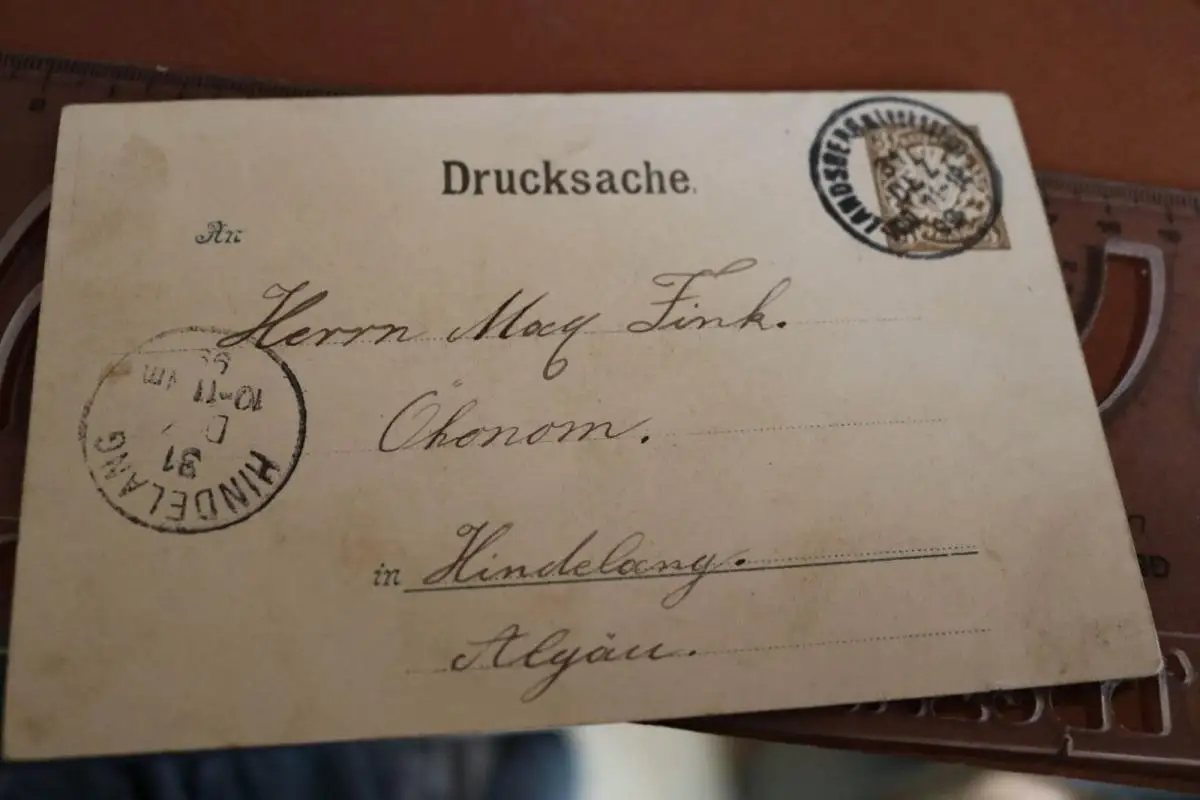 Drucksache.
LANDSBERG
An
Herrn Max Fink.
Ökonom.
in Hindelang.
Algäu.
HINDELANG
31
D
10-11 Vm